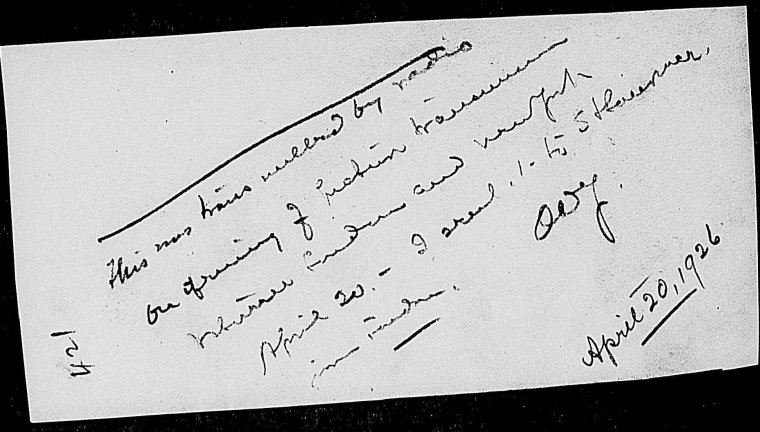 This was transmitted by radio
on opening of picture transmission
between London and New York
April 20. - I send
in London.
April 20, 1926
421